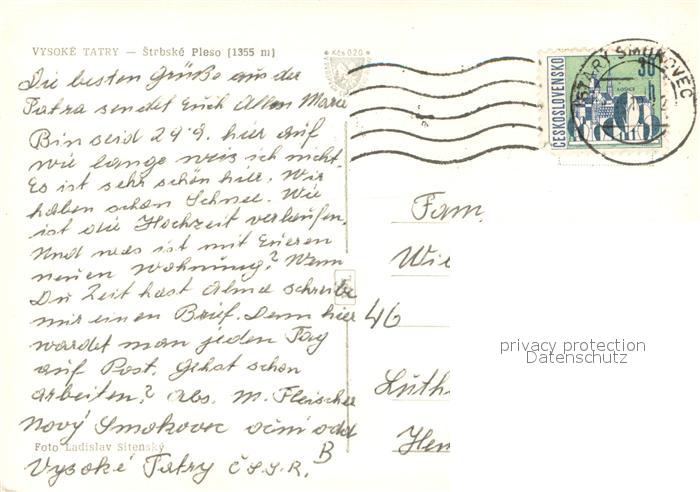 VYSOKÉ TATRY — Štrbské Pleso (1355 m)
Kčs 0,20
Die besten Grüße aus der
Tatra sendet Euch Allen Marie
Bin seid 29.9. hier auf
wie lange weis ich nicht.
Es ist sehr schön hier. Wir
haben schon Schnee. Wie
ist die Hochzeit verlaufen.
Und was ist mit Eueren
neuen Wohnung? Wenn
Du Zeit hast Alma schreibe
mir einen Brief. Denn hier
wardet man jeden Tag
auf Post. Gehst schon
arbeiten? Abs. M. Fleischer
Nový Smokovec oční odd
B
Foto Ladislav Sitenský
Vysoké Tatry Č.S.S.R.
STARÝ SMOKOVEC
ČESKOSLOVENSKO
30 h
KOŠICE
Fam.
Wie
46
Luth
Hen
privacy protection
Datenschutz